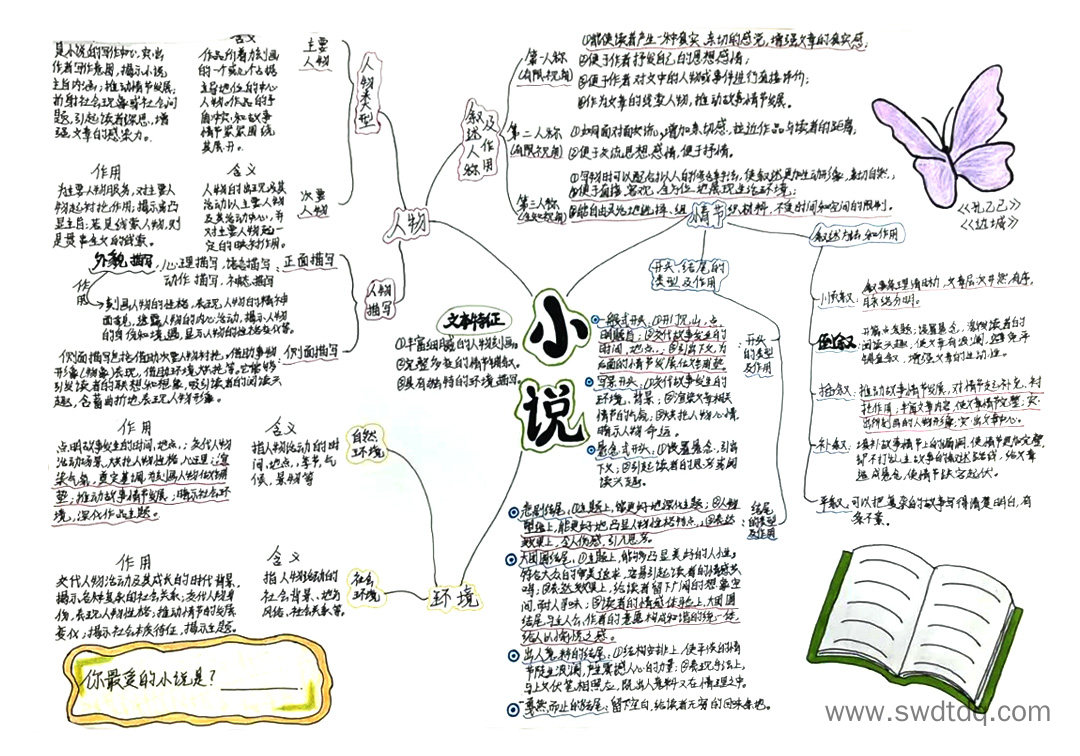 小说
文本特征
①丰富细腻的人物刻画。
②完整多变的情节叙述。
③具有独特的环境描写
人物
人物类型
主要人物
含义
作品所着力刻画
的一个或几个占据
主导地位的中心
人物。作品的矛
盾冲突和故事
情节紧紧围绕
其展开。
是小说的写作中心,突出
作者写作意图,揭示小说
主旨内涵;推动情节发展;
折射社会现象或社会问
题,引起读者深思,增
强文章的感染力。
次要人物
含义
人物的出现及其
活动以主要人物
及其活动中心,并
对主要人物起一
定的映衬作用。
作用
为主要人物服务,对主要人
物起衬托作用;揭示或凸
显主旨;若是线索人物,则
是贯串全文的线索。
人物描写
正面描写
外貌描写,心理描写,语言描写
动作描写,神态描写
作用
刻画人物的性格,表现人物的精神
面貌,透露人物的内心活动,揭示人物
的身份和境遇,显示人物的性格变化等。
侧面描写
侧面描写包括借助次要人物衬托,借助事物
形象(物象)表现,借助环境烘托等。它能够
引发读者的联想和想象,吸引读者的阅读兴
趣,含蓄曲折地表现人物形象。
叙述人称及作用
第一人称
(有限视角)
①能使读者产生一种真实、亲切的感觉,增强文章的真实感;
②便于作者抒发自己的思想感情;
③便于作者对文中的人物或事件进行直接评价;
④作为文章的线索人物,推动故事情节发展。
第二人称
(有限视角)
①如同面对面交流,增加亲切感,拉近作品与读者的距离;
②便于交流思想感情,便于抒情。
第三人称
②便于直接、客观、全方位地展现生活环境;
③能自由灵活地选择、组织材料,不受时间和空间的限制。
情节
《孔乙己》
《边城》
叙述方法和作用
顺叙:
叙事条理清晰,文章层次井然有序,
倒叙:
插叙:
推动故事情节发展,对情节起补充、衬
托作用,丰富文章内容,使文章情节完整,突
出所刻画的人物形象,突出文章中心。
补叙:
平叙:
可以把复杂的故事写得清楚明白,有
条不紊。
开头、结尾的类型及作用
开头的类型及作用
一般式开头:
写景开头:
悬念式开头:①设置悬念,引出
下文;②引起读者的思考或阅
读兴趣。
结尾的类型及作用
悲剧结尾:①主题上,能更好地深化主题;②人物
塑造上,能更好地凸显人物性格特点;③表达
效果上,令人伤感,引人思考。
大团圆结尾:①主题上,能够凸显美好的人性,
符合大众的审美追求,容易引起读者的情感共
鸣;②表达效果上,给读者留下广阔的想象空
间,耐人寻味;③读者的情感体验上,大团圆
结尾与主人公、作者的意愿构成和谐的统一体,
给人以愉悦之感。
出人意料的结尾:①结构安排上,使平淡的情
节陡生波澜,产生震撼人心的力量;②表现手法上,
与上文伏笔相照应,既出人意料又在情理之中。
戛然而止的结尾:留下空白,给读者无穷的回味余地。
环境
自然环境
含义
指人物活动的时
间、地点、季节、气
候、景物等
作用
点明故事发生的时间、地点;交代人物
活动场景,烘托人物性格、心理;渲
染气氛,奠定基调,为刻画人物作铺
垫;推动故事情节发展;暗示社会环
境,深化作品主题。
社会环境
含义
指人物活动的
社会背景、地方
风俗、社会关系等。
作用
交代人物活动及其成长的时代背景,
揭示各种复杂的社会关系;交代人物身
份,表现人物性格;推动情节的发展
变化;揭示社会本质特征,揭示主题。
你最爱的小说是?
www.swdtdq.com